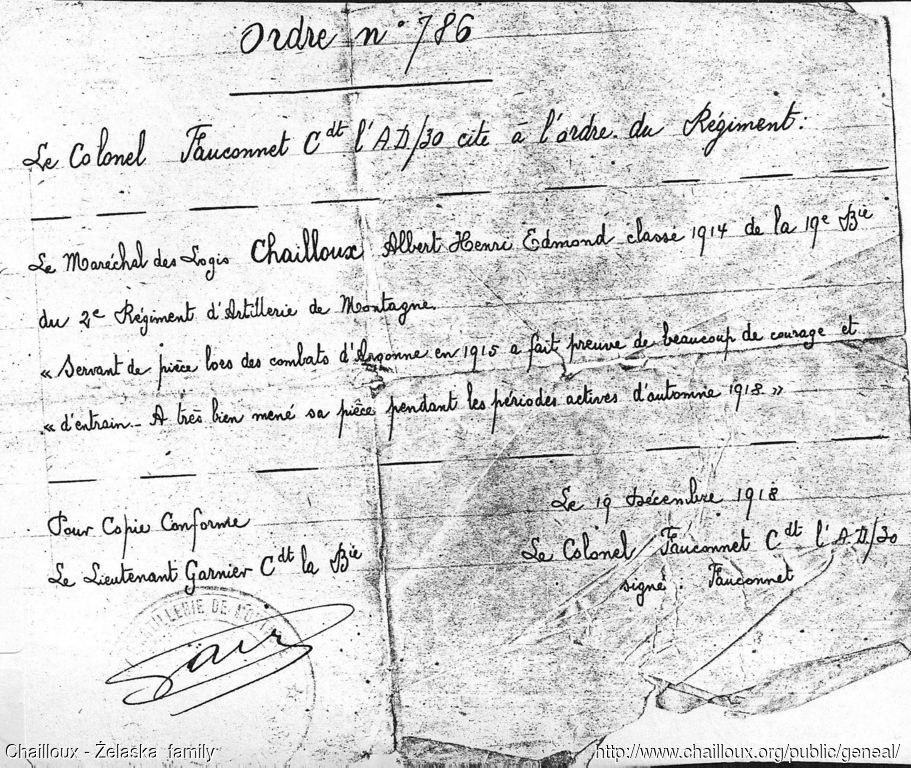 Ordre n° 786
Le Colonel Fauconnet Cdt l'AD/30 cite à l'ordre du Régiment:
Le Maréchal des Logis Chailloux Albert Henri Edmond classe 1914 de la 19e Bie
du 2e Régiment d'Artillerie de Montagne.
« Servant de pièce lors des combats d'Argonne en 1915 a fait preuve de beaucoup de courage et
« d'entrain. - A très bien mené sa pièce pendant les périodes actives d'automne 1918. »
Le 19 Décembre 1918
Pour Copie Conforme
Le Colonel Fauconnet Cdt l'AD/30
Le Lieutenant Garnier Cdt la Bie
signé : Fauconnet
ARTILLERIE DE
Chailloux - Żelaska family
http://www.chailloux.org/public/geneal/